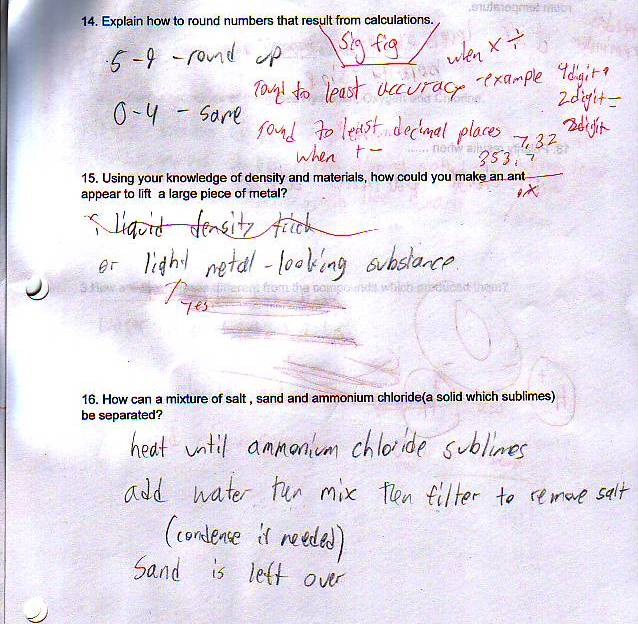 14. Explain how to round numbers that result from calculations.
5-9 - round up
Sig fig
when x ÷
0-4 - same
round to least accuracy - example 4digit
2digit =
2digit
round to least decimal places
when + -
7.32
353.7
.x
15. Using your knowledge of density and materials, how could you make an ant
appear to lift a large piece of metal?
liquid density trick
or light metal-looking substance.
yes
16. How can a mixture of salt , sand and ammonium chloride(a solid which sublimes)
be separated?
heat until ammonium chloride sublimes
add water then mix then filter to remove salt
(condense if needed)
Sand is left over